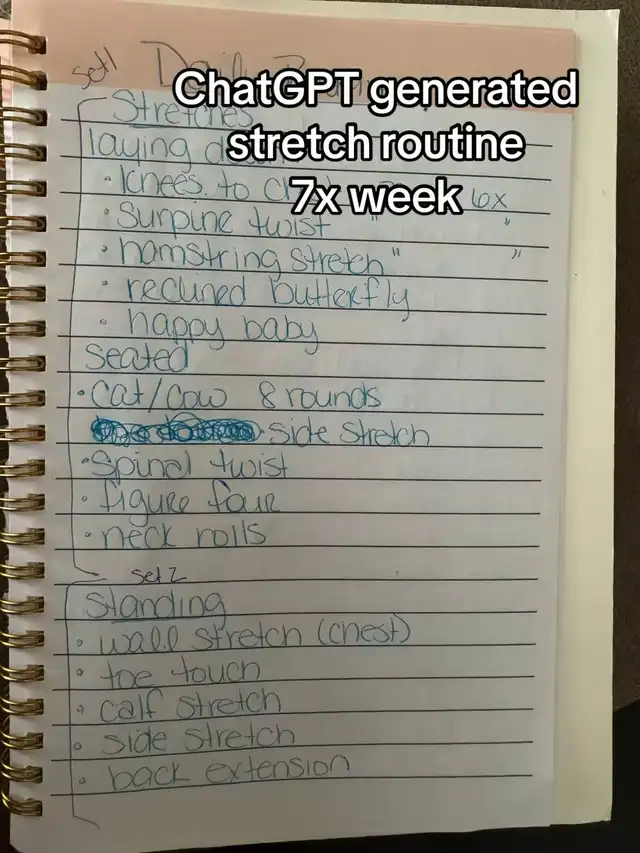 ChatGPT generated
stretch routine
7x week
set1 Daily
Stretches
laying
• knees to 6x
• Surpine twist " "
• hamstring stretch " "
• reclined butterfly
• happy baby
Seated
• cat/cow 8 rounds
• side stretch
• Spinal twist
• figure four
• neck rolls
set 2
Standing
• wall stretch (chest)
• toe touch
• calf stretch
• side stretch
• back extension